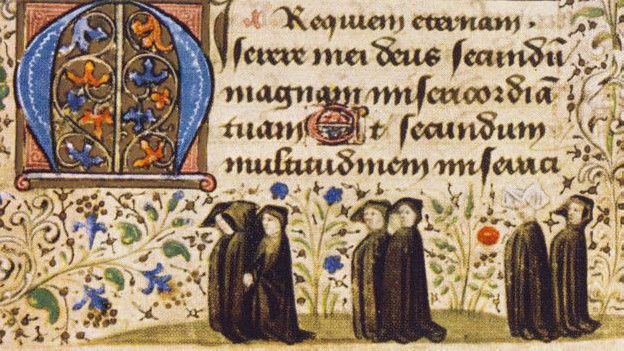 Requiem eternam.
Miserere mei deus secundū
magnam misericordiā
tuam Et secundum
multitudinem miseraci